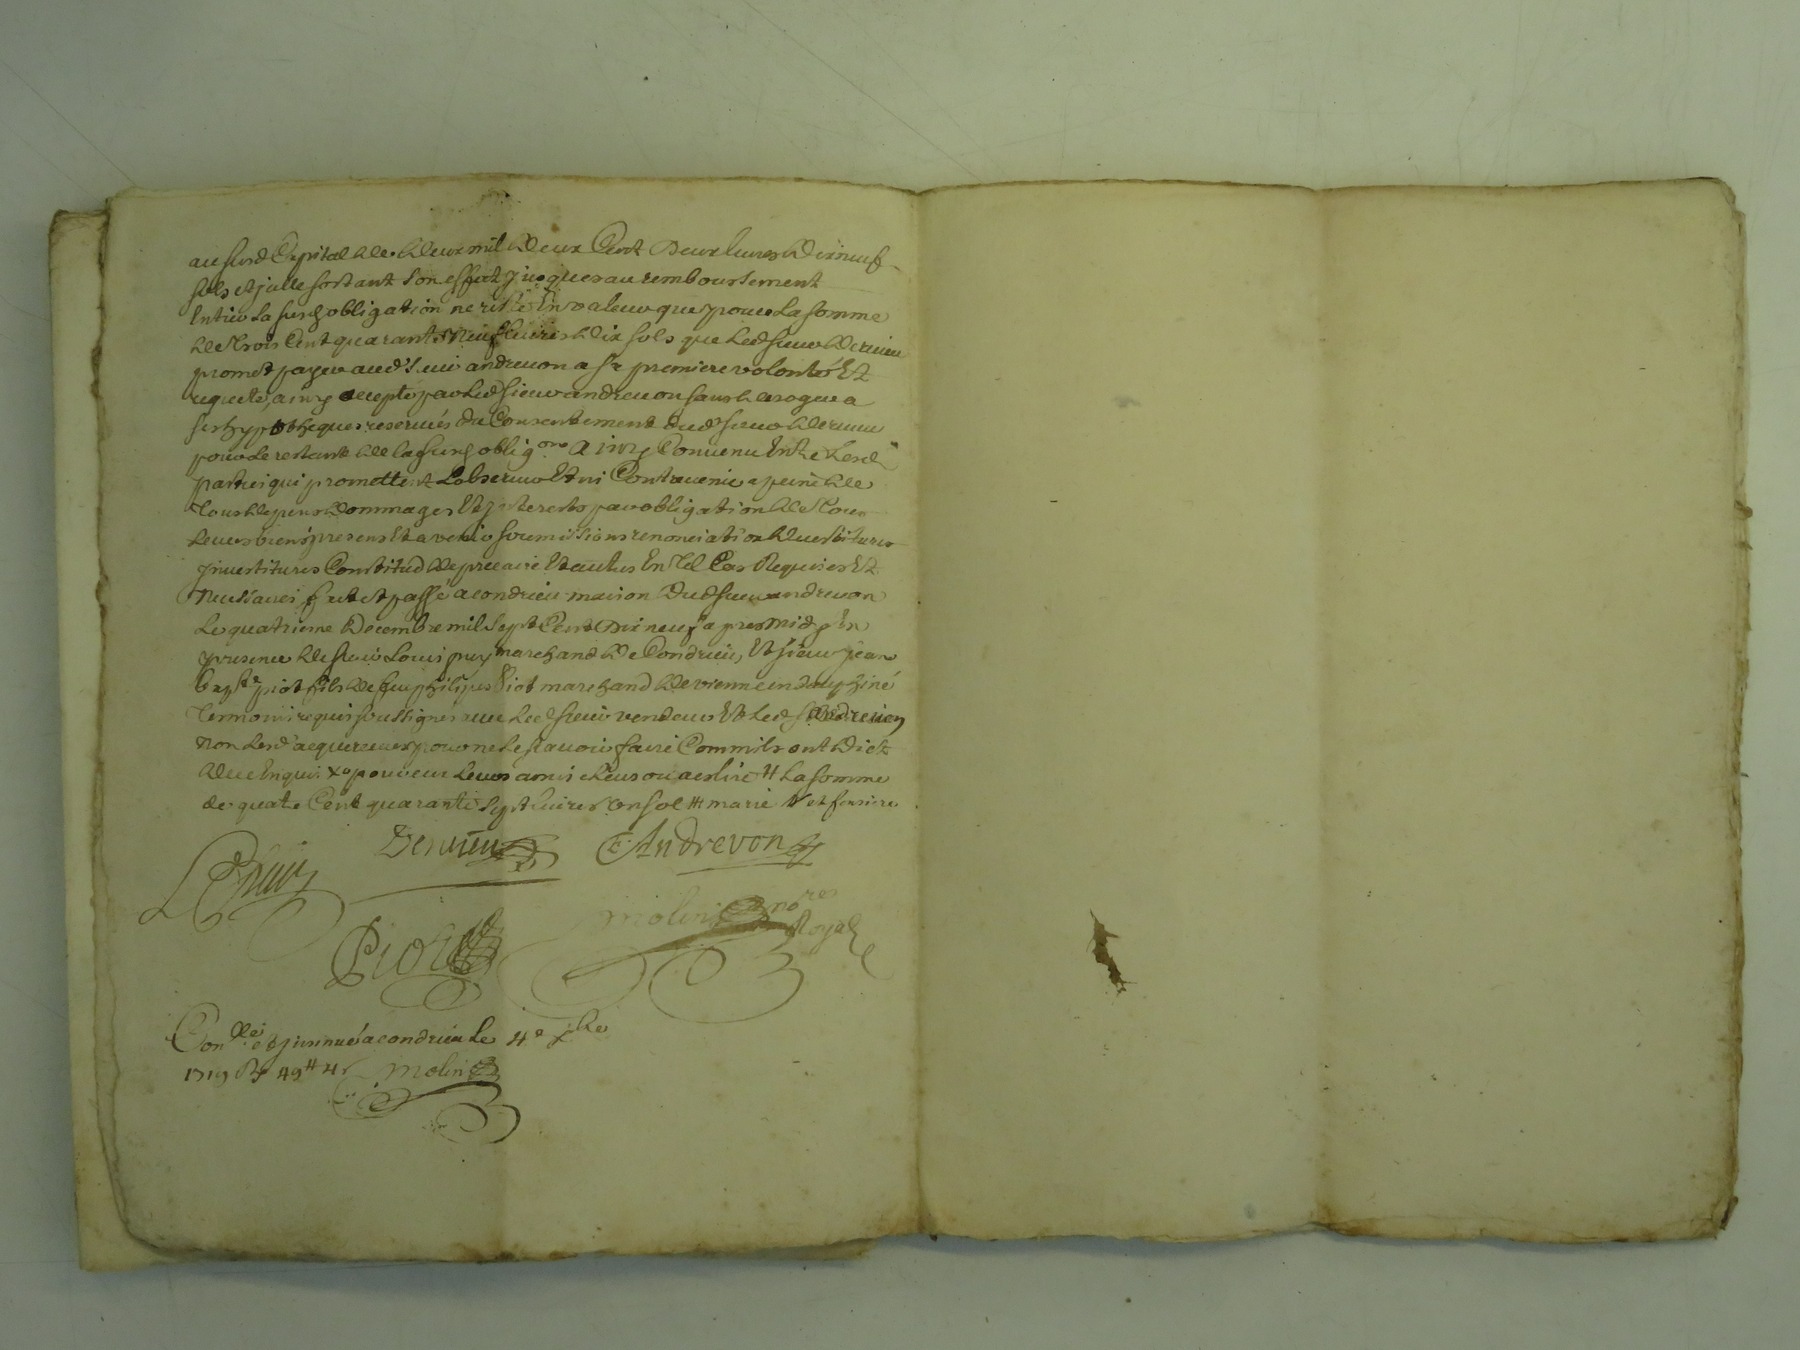 au susd Capital de deux mil deux Cent Deux livres dixneuf
sols et jcelle sortant son effect jusques au remboursement
Entier La susd obligation ne reste En valeur que pour La somme
de Trois Cent quarante Neuf Livres dix sols que Led sieur Dervieu
promet payer aud s.eur andrevon a sa premiere volonté Et
requete, ainsy accepté par Led sieur andrevon sans deroguer a
ses hypotheques reservés du Consentement dud sieur dervieu
pour Le restant de la susd oblig.on Ainsy Convenu Entre Lesd
parties qui promettent L'observer Et ni Contrevenir a peine de
Tous depens dommages Et jnterests par obligation de Tous
Leurs biens presens Et a venir soumissions renonciation devestitures
jnvestitures Constitud de precaire Et autres En Tel Cas Requises Et
Necessaires fait et passé a condrieu maison Dud sieur andrevon
Le quatrieme Decembre mil sept Cent Dixneuf apres midy En
presence de sieur Louis puy marchand de Condrieu, Et sieur jean
bap.te piot fils de feu philipes Piot marchand de vienne en dauphiné
Temoins requis soussignés avec Led sieur vendeur Et Led s. andrevon
Non Lesd acquereurs pour ne Le sçavoir faire Comm'ils ont dict
de ce Enquis
de quatre Cent quarante sept Livres un sol marie
Dervieu
Andrevon
L Puy
Piot
Molin no.re Royal
Con.llé et jnsinué a condrieu Le 4e xbre
1719 R 49 # 4 s Molin